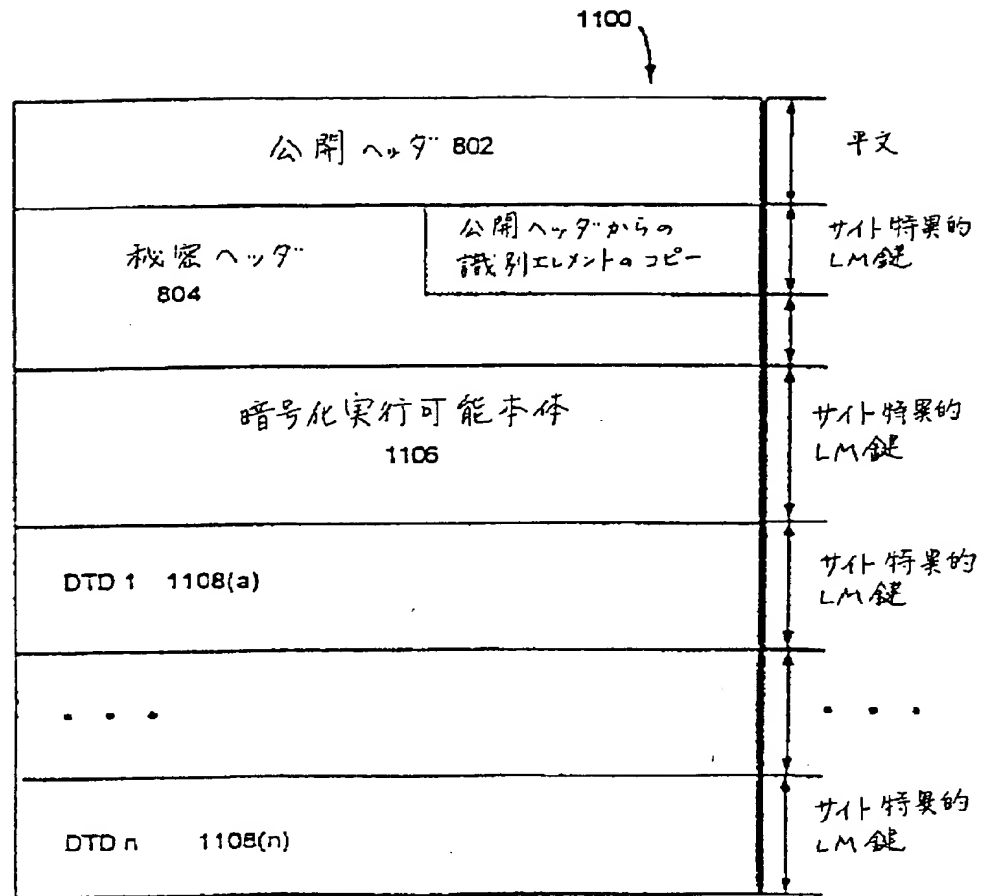 1100
公開ヘッダ 802
平文
秘密ヘッダ
804
公開ヘッダからの
識別エレメントのコピー
サイト特異的
LM鍵
暗号化実行可能本体
1106
サイト特異的
LM鍵
DTD 1 1108(a)
サイト特異的
LM鍵
. . .
. . .
DTD n 1108(n)
サイト特異的
LM鍵